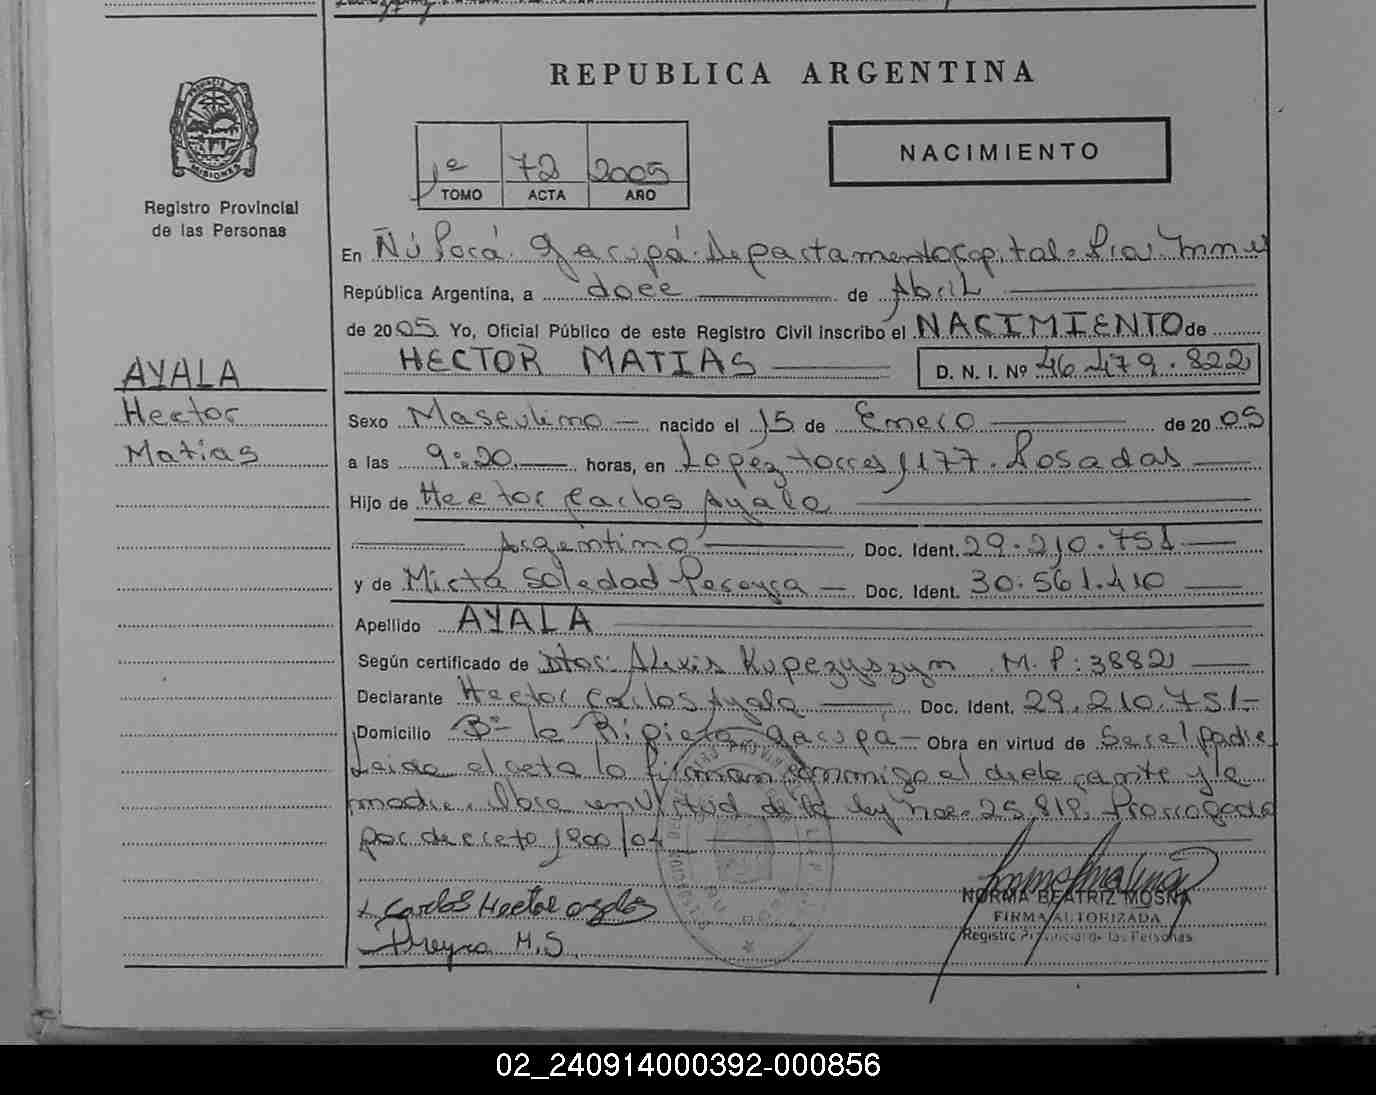 REPUBLICA ARGENTINA
PROVINCIA DE MISIONES
Registro Provincial
de las Personas
1º 72 2005
TOMO ACTA AÑO
NACIMIENTO
En Ñú Porá. Garupá. Departamento Capital. Pcia.
República Argentina, a doce de Abril
de 2005 Yo, Oficial Público de este Registro Civil inscribo el NACIMIENTO de
HECTOR MATIAS D. N. I. Nº 46.479.822
AYALA
Hector
Matias
Sexo Masculino nacido el 15 de Enero de 2005
a las 9:20 horas, en Lopez torres 1177. Posadas
Hijo de Hector Carlos Ayala
Argentino Doc. Ident. 29.210.751
y de Mirta Soledad Pereyra Doc. Ident. 30.561.410
Apellido AYALA
Según certificado de Dtor: Alexis Kupezyszym M.P: 3882
Declarante Hector Carlos Ayala Doc. Ident. 29.210.751
Domicilio Bº la Ripiera Garupá Obra en virtud de Ser el padre
Leida el acta la firman conmigo el declarante y la
madre. Obra en virtud de la ley Nro. 25.819, Prorrogada
por decreto 1900/04
Carlos Hector
Pereyra M.S.
NORMA BEATRIZ MOSNA
FIRMA AUTORIZADA
Registro Provincial de las Personas
02_240914000392-000856